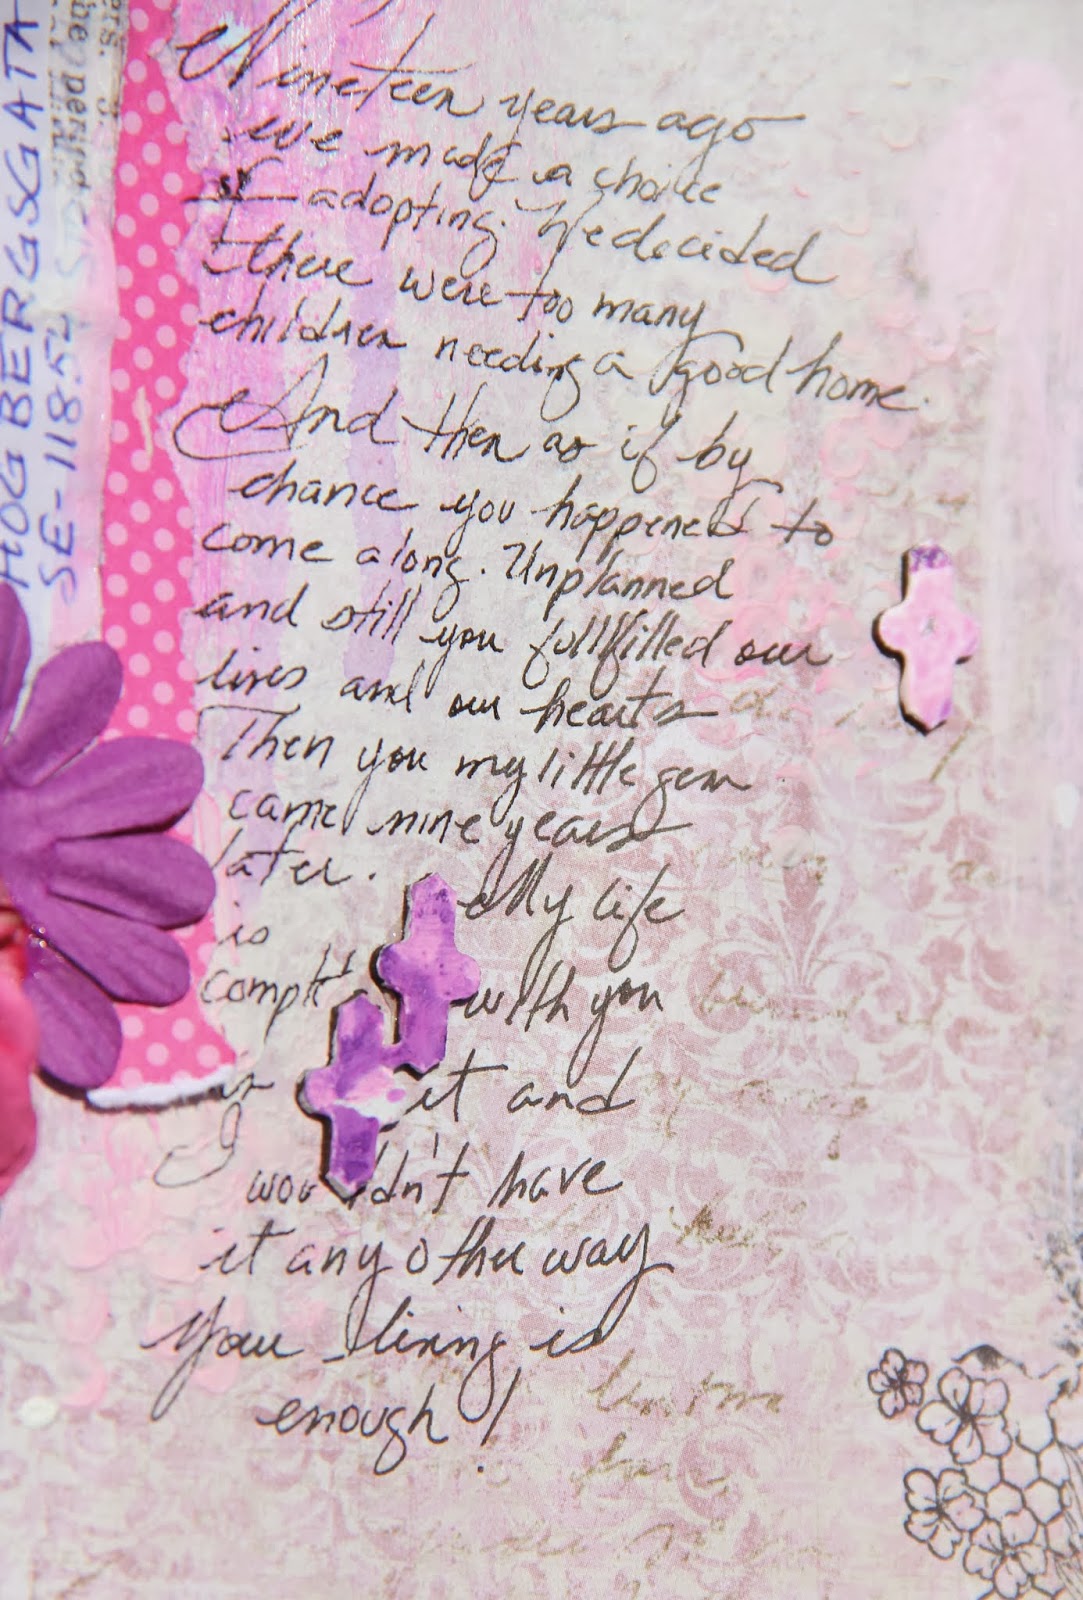 HOGBERGSGATA
SE-118 54 S
Nineteen years ago
we made a choice
adopting. We decided
there were too many
children needing a good home.
And then as if by
chance you happened to
come along. Unplanned
and still you fullfilled our
lives and our hearts
Then you my little gem
came nine years
later. My life
is
compl with you
in it and
I
wouldn't have
it any other way
your living is
enough!